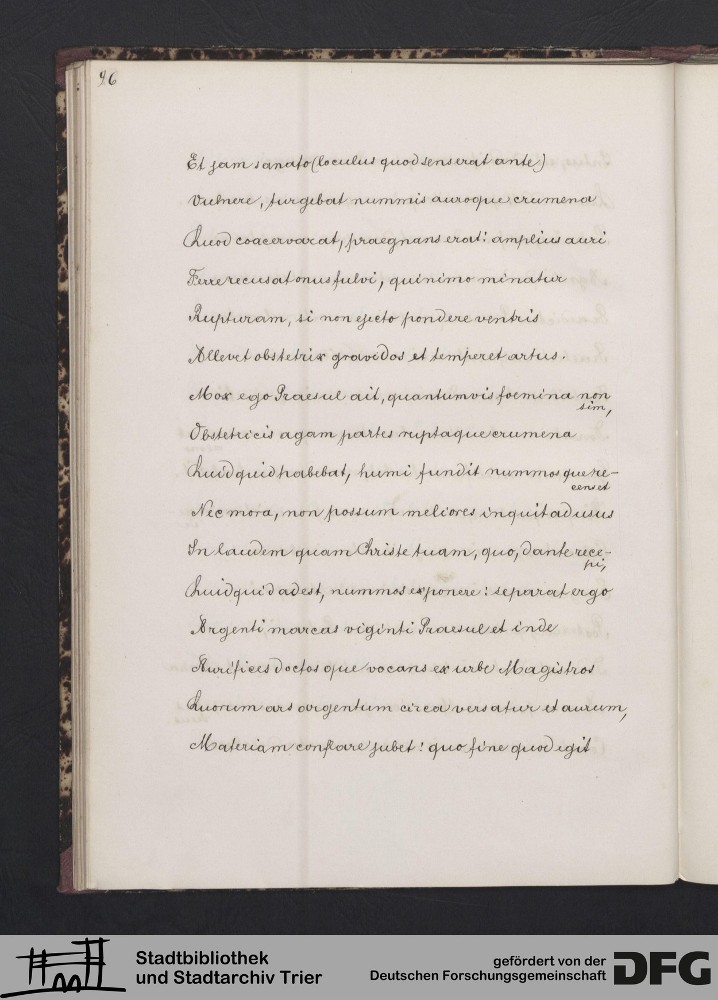 96
Et jam sanato (loculus quod senserat ante)
Vulnere, turgebat nummis auroque crumena
Quod coacervarat, praegnans erat: amplius auri
Ferre recusat onus fulvi, quinimo minatur
Rupturam, si non ejecto pondere ventris
Allevet obstetrix gravidos et temperet artus.
Mox ego Praesul ait, quantumvis foemina non
sim,
Obstetricis agam partes ruptaque crumena
Quidquid habebat, humi fundit nummosque re-
censet
Nec mora, non possum meliores inquit ad usus
In laudem quam Christe tuam, quo, dante rece-
pi,
Quidquid adest, nummos exponere: separat ergo
Argenti marcas viginti Praesul et inde
Aurifices doctosque vocans ex urbe Magistros
Quorum ars argentum circa versatur et aurum,
Materiam conflare jubet: quo fine quod egit
Stadtbibliothek
und Stadtarchiv Trier
gefördert von der
Deutschen Forschungsgemeinschaft
DFG